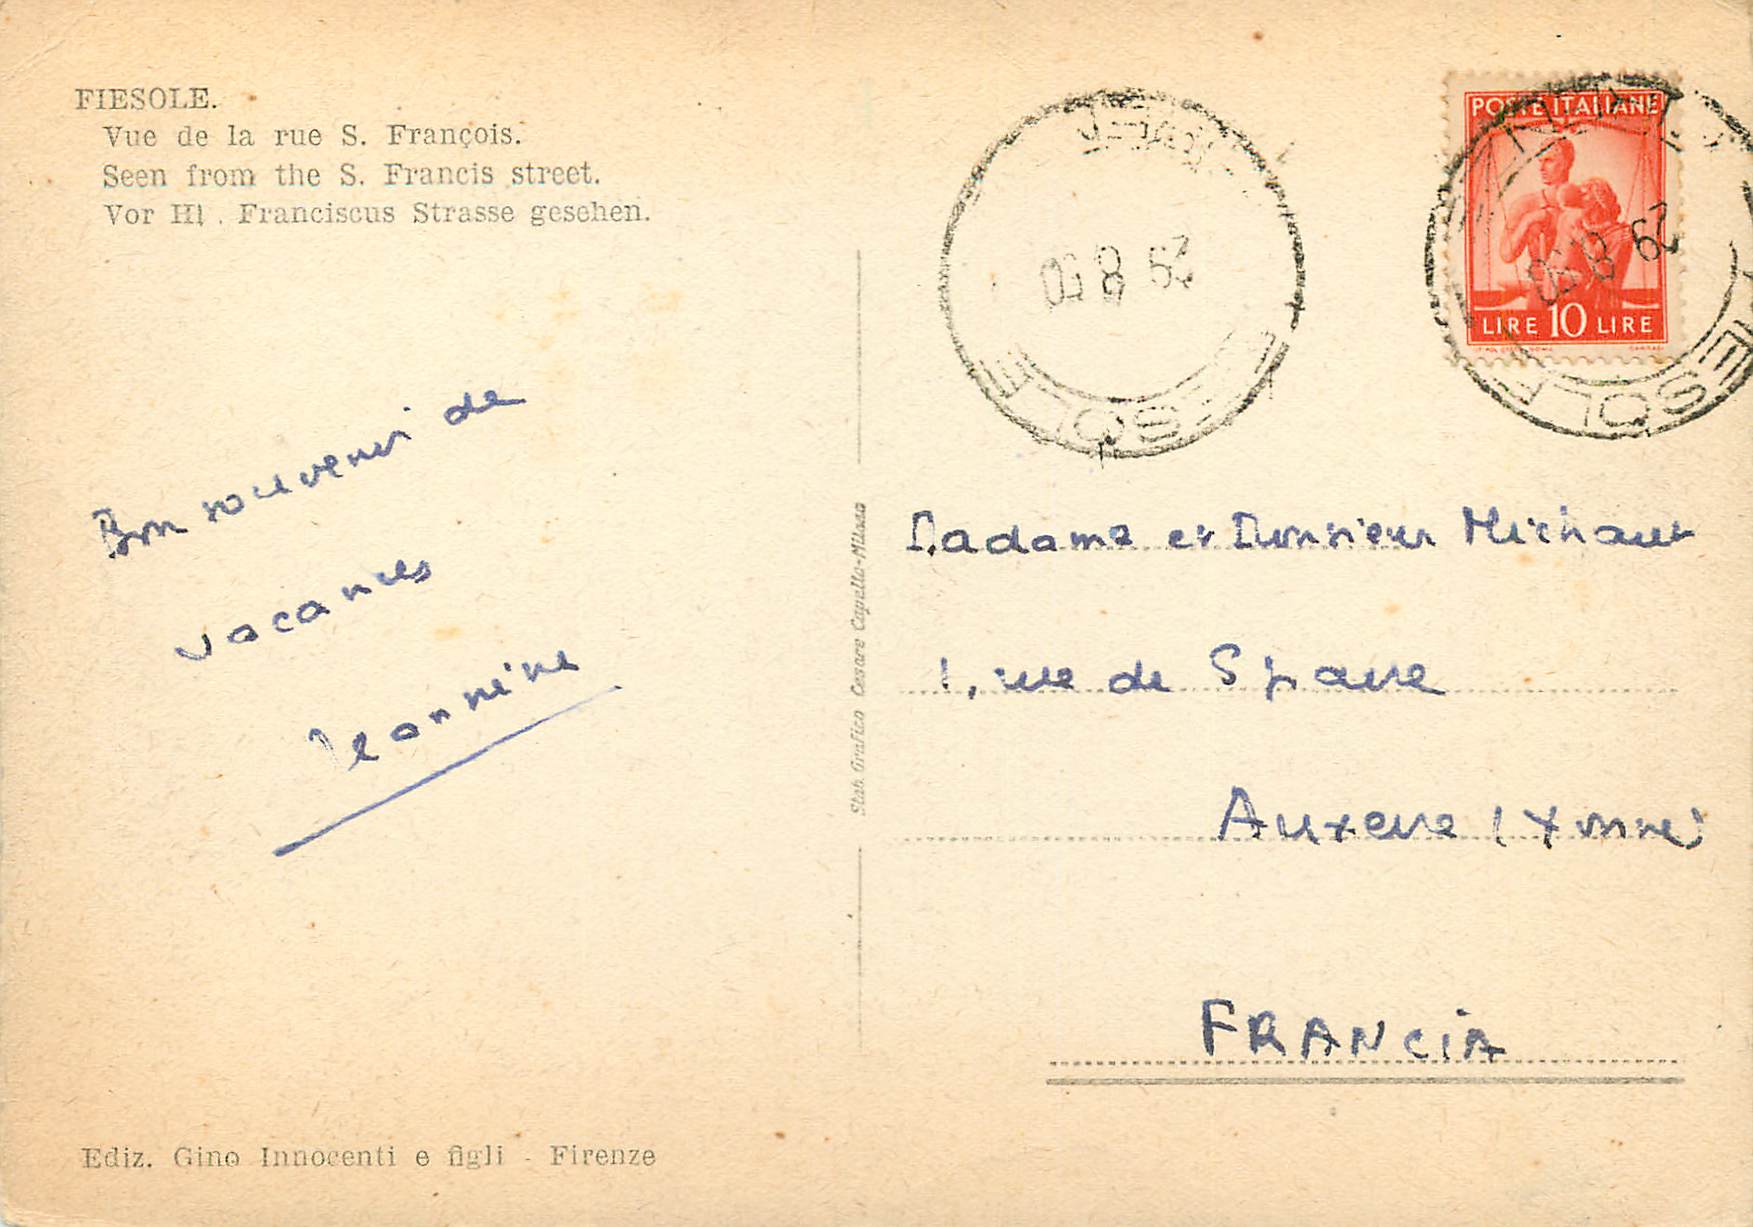 FIESOLE.
Vue de la rue S. François.
Seen from the S. Francis street.
Vor Hl. Franciscus Strasse gesehen.
Bon souvenir de
vacances
Jeannine
Ediz. Gino Innocenti e figli - Firenze
Stab. Grafico Cesare Capello-Milano
FIESOLE
POSTE ITALIANE
LIRE 10 LIRE
FIESOLE
Madame et Monsieur Michaut
1, rue de
Auxerre (Yonne)
FRANCIA